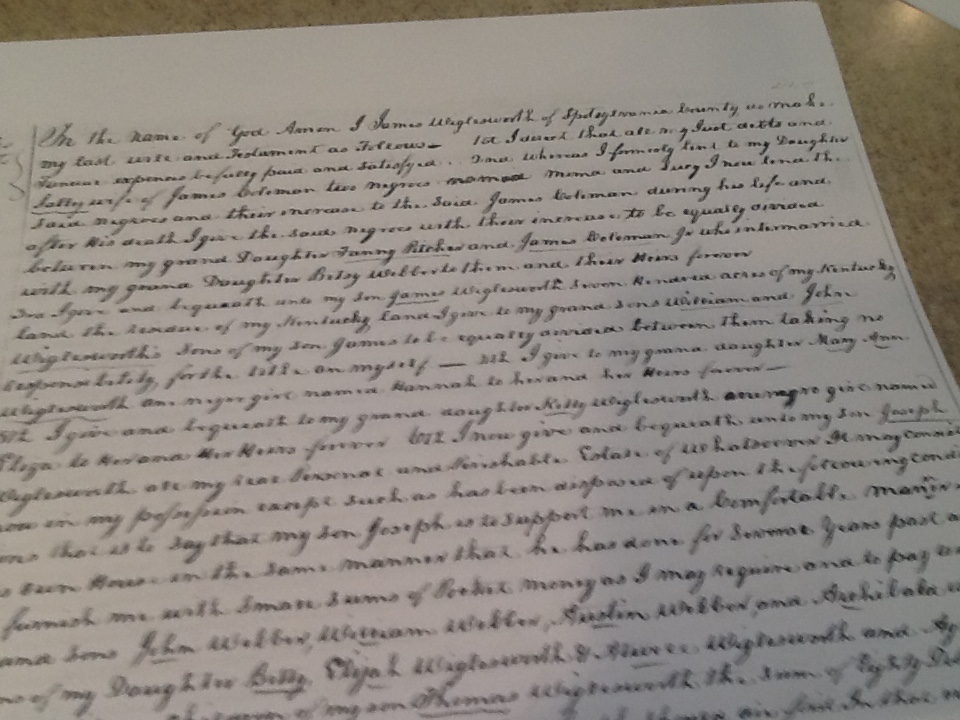 In the name of God Amen I James Wiglesworth of Spotsylvania County do make
my last will and Testament as Follows — 1st I direct that all my Just debts and
Funeral expenses be fully paid and satisfyed .. 2nd whereas I formerly lent to my Daughter
Sally wife of James Coleman two negroes named Mima and Lucy I now lend the
said negroes and their increase to the said James Coleman during his life and
after his death I give the said negroes with their increase to be equally divided
between my grand Daughter Fanny Richer and James Coleman Jr who intermarried
with my grand Daughter Betsy Webber to them and their Heirs forever
3rd I give and bequeath unto my son James Wiglesworth Seven Hundred acres of my Kentucky
land the residue of my Kentucky land I give to my grand sons William and John
Wiglesworth Sons of my son James to be equally divided between them taking no
responsibility for the title on myself — 4th I give to my grand daughter Mary Ann
Wiglesworth one negro girl named Hannah to her and her Heirs forever —
5th I give and bequeath to my grand daughter Kitty Wiglesworth one negro girl named
Eliza to Her and Her Heirs forever 6th I now give and bequeath unto my son Joseph
Wiglesworth all my real Personal and Perishable Estate of whatsoever It may consist
now in my possession except such as has been disposed of upon the following condi
ons that is to say that my son Joseph is to support me in a Comfortable manner
own House in the same manner that he has done for several Years past
furnish me with small sums of Pocket money as I may require and to pay
and sons John Webber, William Webber, Austin Webber, and Archibald
of my Daughter Betsy, Elijah Wiglesworth & Wiglesworth and
of my son Thomas Wiglesworth the sum of Eighty